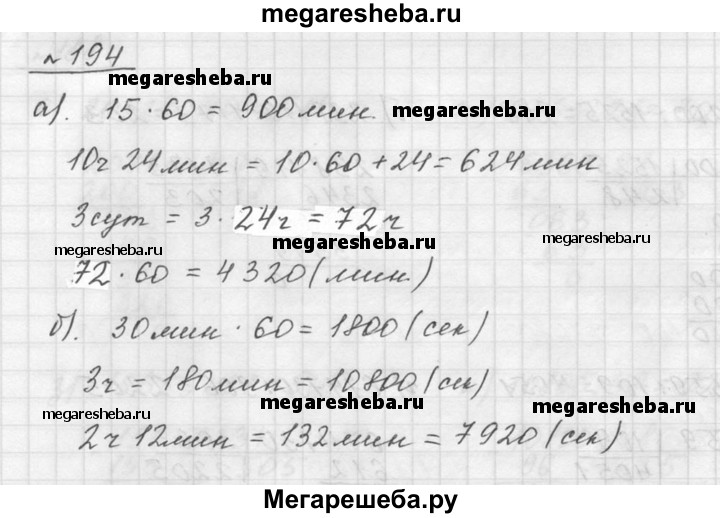 megaresheba.ru
№194
megaresheba.ru
а). 15·60 = 900 мин. megaresheba.ru
10ч 24мин = 10·60+24 = 624 мин
3сут = 3·24ч = 72ч
megaresheba.ru megaresheba.ru
72·60 = 4320 (мин.)
б). 30мин·60 = 1800 (сек)
3ч = 180мин = 10800 (сек)
megaresheba.ru megaresheba.ru megaresheba.ru
2ч 12мин = 132мин = 7920 (сек)
Мегарешеба.ру